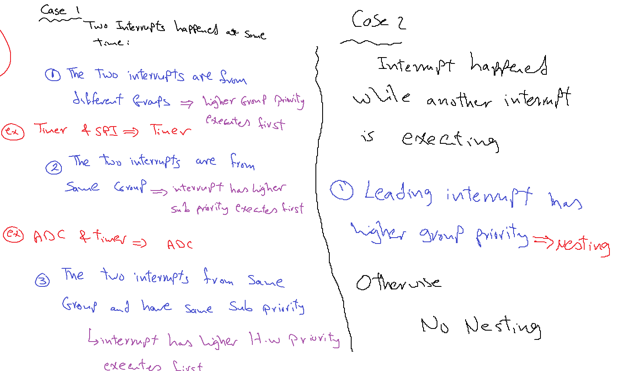 Case 1
Two Interrupts happened at same
time:
① The two interrupts are from
different Groups ⇒ higher Group priority
executes first
ex Timer & SPI ⇒ Timer
② The two interrupts are from
Same Group ⇒ interrupt has higher
sub priority executes first
ex ADC & timer ⇒ ADC
③ The two interrupts from same
Group and have same sub priority
↳ interrupt has higher H.w priority
executes first
Case 2
Interrupt happened
while another interrupt
is executing
① Leading interrupt has
higher group priority ⇒ nesting
Otherwise
No Nesting